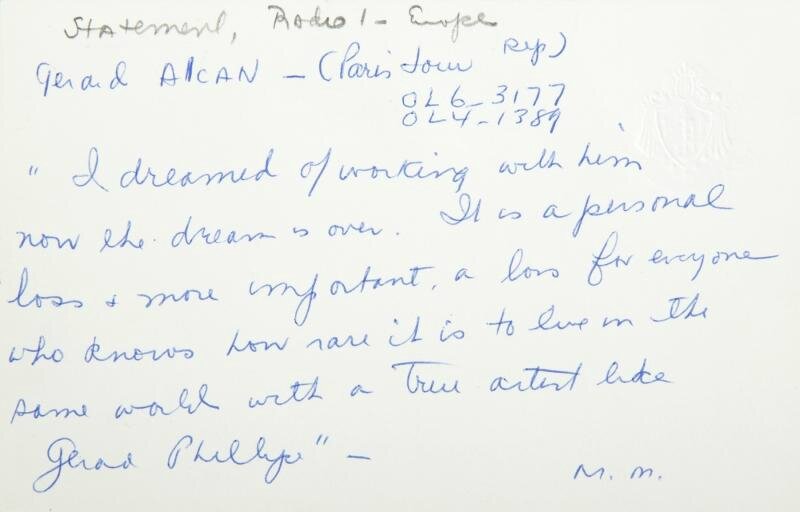 Statement, Radio 1 - Europe
Gerard AlCAN - (Paris Jour Rep)
OL6-3177
OL4-1389
" I dreamed of working with him
now the dream is over. It is a personal
loss & more important, a loss for everyone
who knows how rare it is to live in the
same world with a True artist like
Gerad Phillipe" -
M. M.